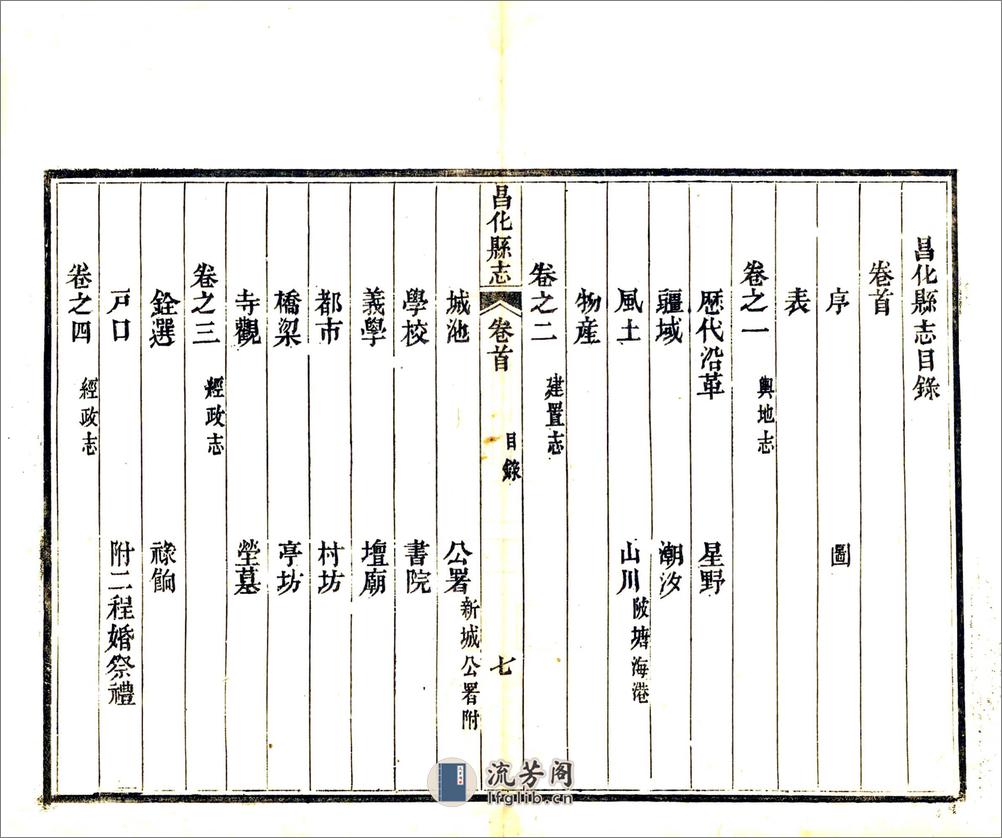 昌化縣志目錄
卷首
序 圖
表
卷之一 輿地志
歷代沿革 星野
疆域 潮汐
風土 山川 陂塘海港
物產
卷之二 建置志
昌化縣志 卷首 目錄 七
城池 公署 新城公署附
學校 書院
義學 壇廟
都市 村坊
橋梁 亭坊
寺觀 塋墓
卷之三 經政志
銓選 祿餉
戶口 附二程婚祭禮
卷之四 經政志
流芳阁
lfglib.cn